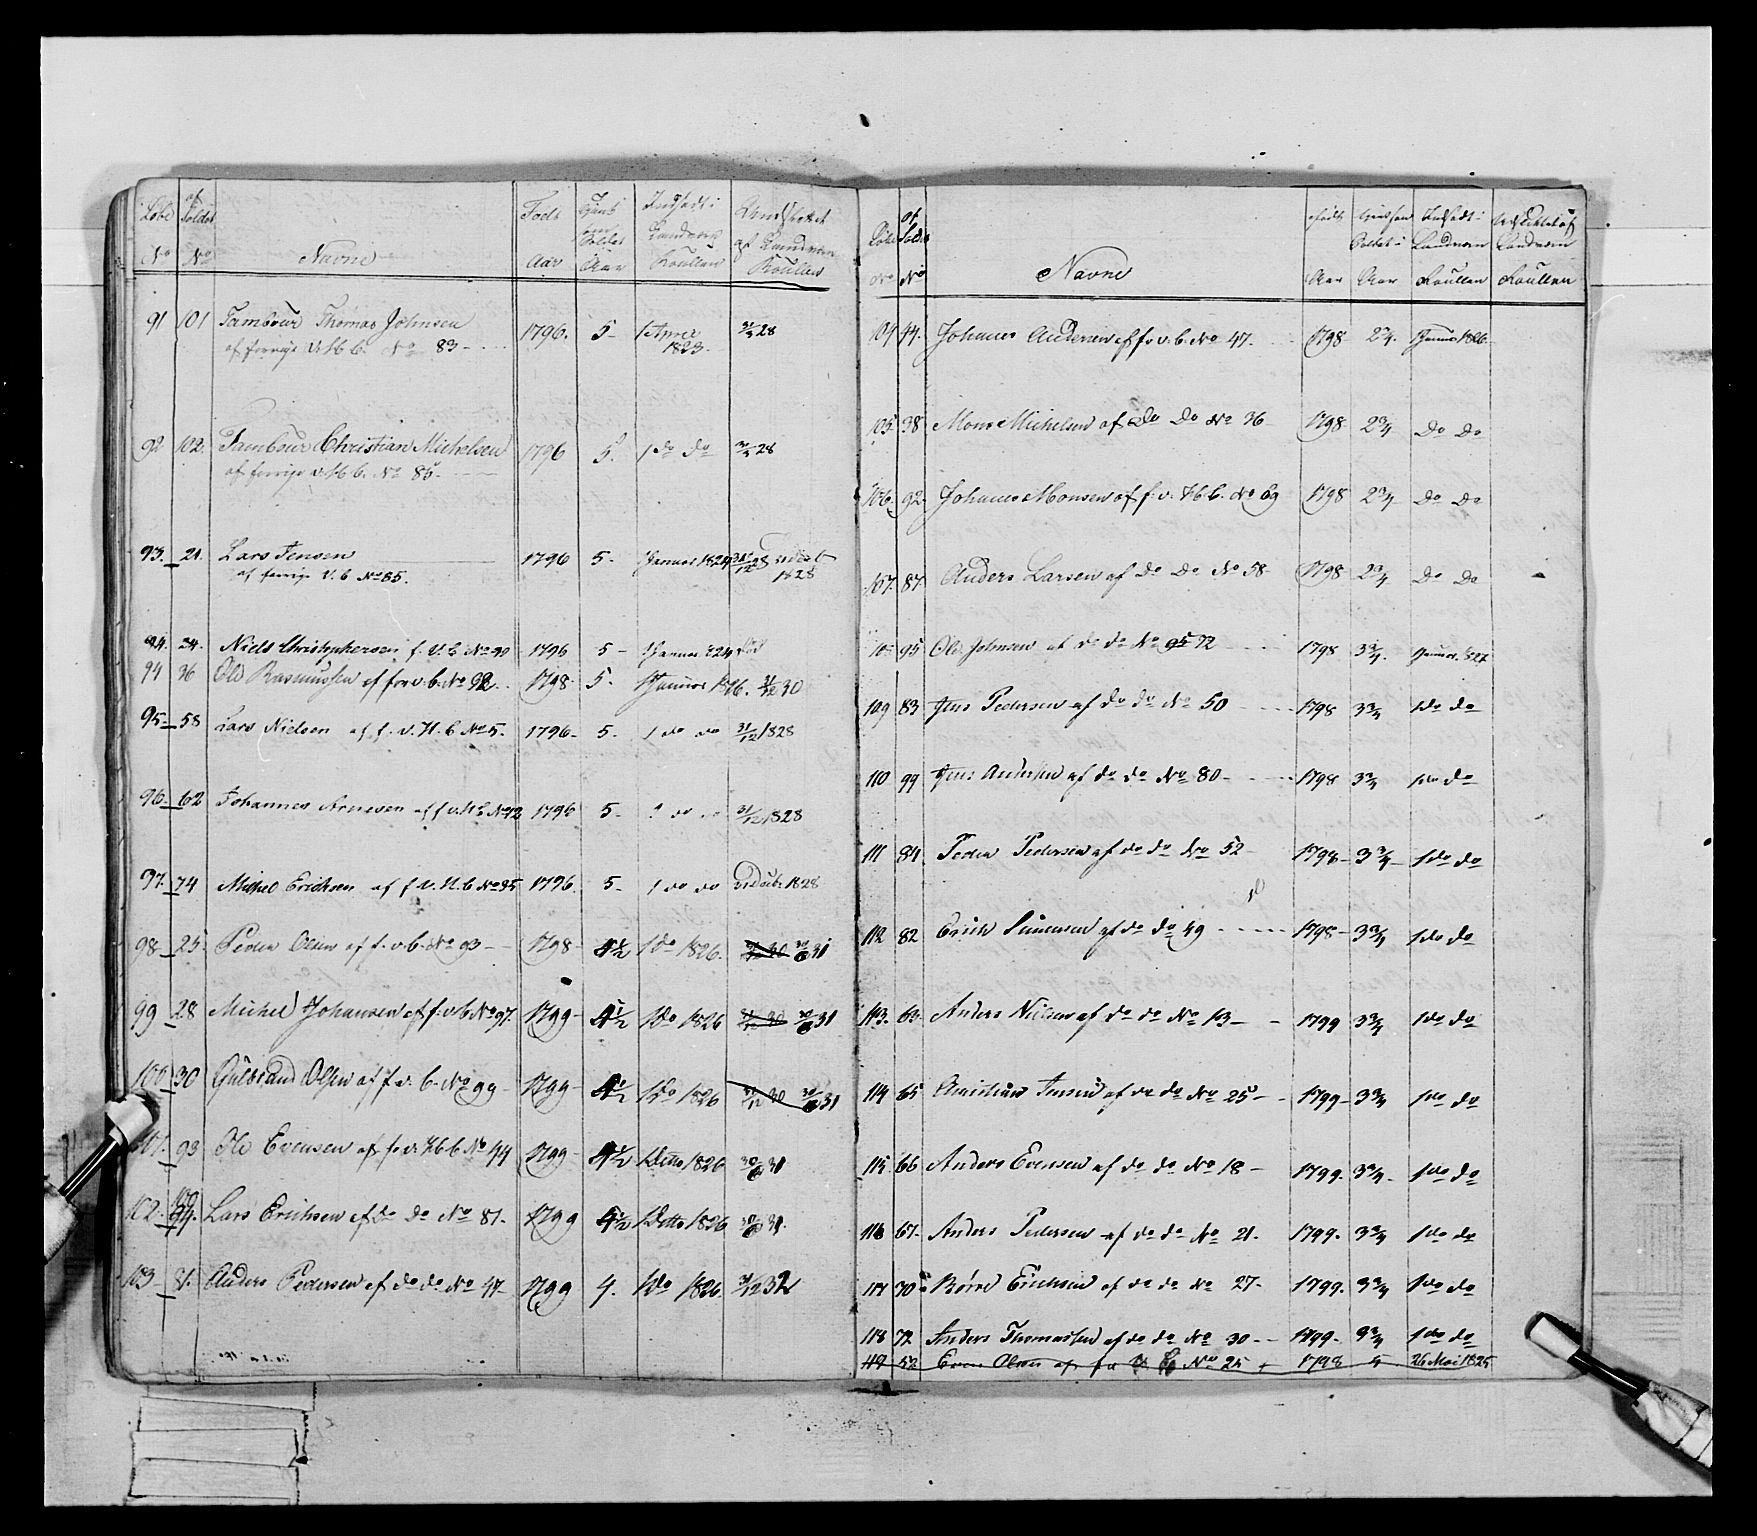 Løbe
No
af
Soldat
No
Navne
Født
Aar
Aar
Indsadt i
Landværn
Roullen
af Landværn
Roullen
91 101 Tambour Thomas Johnsen 1796. 5- 1 April 31/3 28
af forrige v. H. b. No 83- 1823.
92 102. Tambour Christian Michelsen 1796 5. 1 do do 31/3 28
af forrige v. H. b. No 85-
93. 21. Lars Jensen 1796 5- 1 Januar 1824 31/12 28
af forrige v. b No 85. 1828
94. 24. Niels Christophersen f. v. b No 90 1796 5- 1 Januar 824
94 36 Ole Rasmussen af for v. b. No 92. 1798. 5. 1 Januar 1826. 31/12 30
95- 58 Lars Nielsen af f. v. H. b No 5. 1796- 5. 1 do do 31/12 1828
96- 62 Johannes Arnesen af f v. H. b No 12 1796 5- 1 do do 31/12 1828
97. 74 Michel Erichsen af f v. H. b No 85 1796. 5- 1 do do 1828
98- 25 Peder Olsen af f. v. b. No 93- 1798- 4 1/2 1 do 1826. 30/6 31
99 28 Michel Johansen af f. v b No 97. 1799- 4 1/2 1 do 1826 31/12 30 30/6 31
100 30 Gulbrand Olsen af f v. b. No 99- 1799- 4 1/2 1 do 1826 31/12 30 30/6 31
101. 93 Ole Evensen af f v. H b No 44 1799- 4 1/2 1 Detto 1826 30/6 31
102- Lars Erichsen af do do No 81- 1799 4 1/2 1 Detto 1826 30/6 31.
103- 31. Anders Pedersen af do do No 47- 1799 4. 1 do 1826. 31/12 32
Løbe
No
af
Soldat
No
Navne
Født
Aar
Aar
Indsadt i
Landværn
Roullen
Udslettet af
Landværn
Roullen
104 44. Johannes Andersen af f v. b. No 47- 1798 2 3/4. 1 Januar 1826-
105. 38. Mons Michelsen af do do No 36 1798 2 3/4 do do
106. 92. Johannes Monsen af f. v. H b. No 69 1798 2 3/4 do do
107. 87. Anders Larsen af do do No 58- 1798 2 3/4 do do
95 Ole Johnsen af do do No 72 1798 3 3/4. 1 Januar 1827
109 83 Jens Pedersen af do do No 50 1798 3 3/4 1 do do
110 99 Jens Andersen af do do No 80- 1798 3 3/4 1 do do
111 84. Peder Pedersen af do do No 52- 1798- 3 3/4- 1 do do
112 82 Erich Simensen af do do 49 1798- 3 3/4 1 do do
113. 63. Anders Nielsen af do do No 13- 1799 3 3/4 1 do do
114 65 Christian Jensen af do do No 25- 1799- 3 3/4 1 do do
115 66 Anders Evensen af do do No 18- 1799. 3 3/4- 1 do do
116 67. Anders Pedersen af do do No 21. 1799. 3 3/4 1 do do
117 70 Børre Erichsen af do do No 27- 1799. 3 3/4 1 do do
118 72. Anders Thomassen af do do No 30- 1799- 3 3/4 1 do do
49 52 Even Olsen af f v. b No 25 1798 5 26 Mai 1825